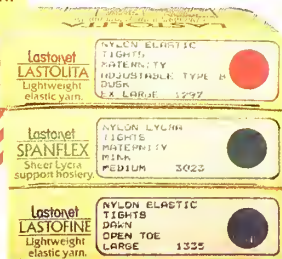 Lastonet
LASTOLITA
Lightweight
elastic yarn.
NYLON ELASTIC
TIGHTS
MATERNITY
ADJUSTABLE TYPE B
DUSK
EX LARGE 1297
Lastonet
SPANFLEX
Sheer Lycra
support hosiery.
NYLON LYCRA
TIGHTS
MATERNITY
MINK
MEDIUM 3023
Lastonet
LASTOFINE
Lightweight
elastic yarn.
NYLON ELASTIC
TIGHTS
DAWN
OPEN TOE
LARGE 1335